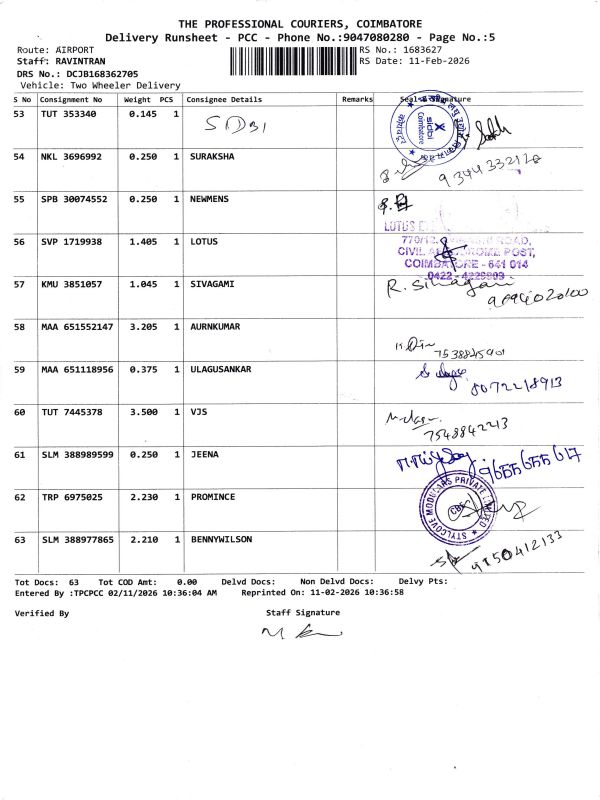 THE PROFESSIONAL COURIERS, COIMBATORE
Delivery Runsheet - PCC - Phone No.:9047080280 - Page No.:5
Route: AIRPORT
RS No.: 1683627
Staff: RAVINTRAN
RS Date: 11-Feb-2026
DRS No.: DCJB168362705
Vehicle: Two Wheeler Delivery
S No Consignment No Weight PCS Consignee Details Remarks Seal & Signature
53 TUT 353340 0.145 1 SIDBI
sidbi
Coimbatore
54 NKL 3696992 0.250 1 SURAKSHA
55 SPB 30074552 0.250 1 NEWMENS
LOTUS
56 SVP 1719938 1.405 1 LOTUS
ROAD,
POST,
COIMBATORE - 641 014
57 KMU 3851057 1.045 1 SIVAGAMI
R. Sivagami
58 MAA 651552147 3.205 1 AURNKUMAR
59 MAA 651118956 0.375 1 ULAGUSANKAR
8072218913
60 TUT 7445378 3.500 1 VJS
7548842213
61 SLM 388989599 0.250 1 JEENA
9655655617
62 TRP 6975025 2.230 1 PROMINCE
STYLCOVE MODULARS PRIVATE LIMITED
CBE
63 SLM 388977865 2.210 1 BENNYWILSON
9150412133
Tot Docs: 63 Tot COD Amt: 0.00 Delvd Docs: Non Delvd Docs: Delvy Pts:
Entered By :TPCPCC 02/11/2026 10:36:04 AM Reprinted On: 11-02-2026 10:36:58
Verified By Staff Signature